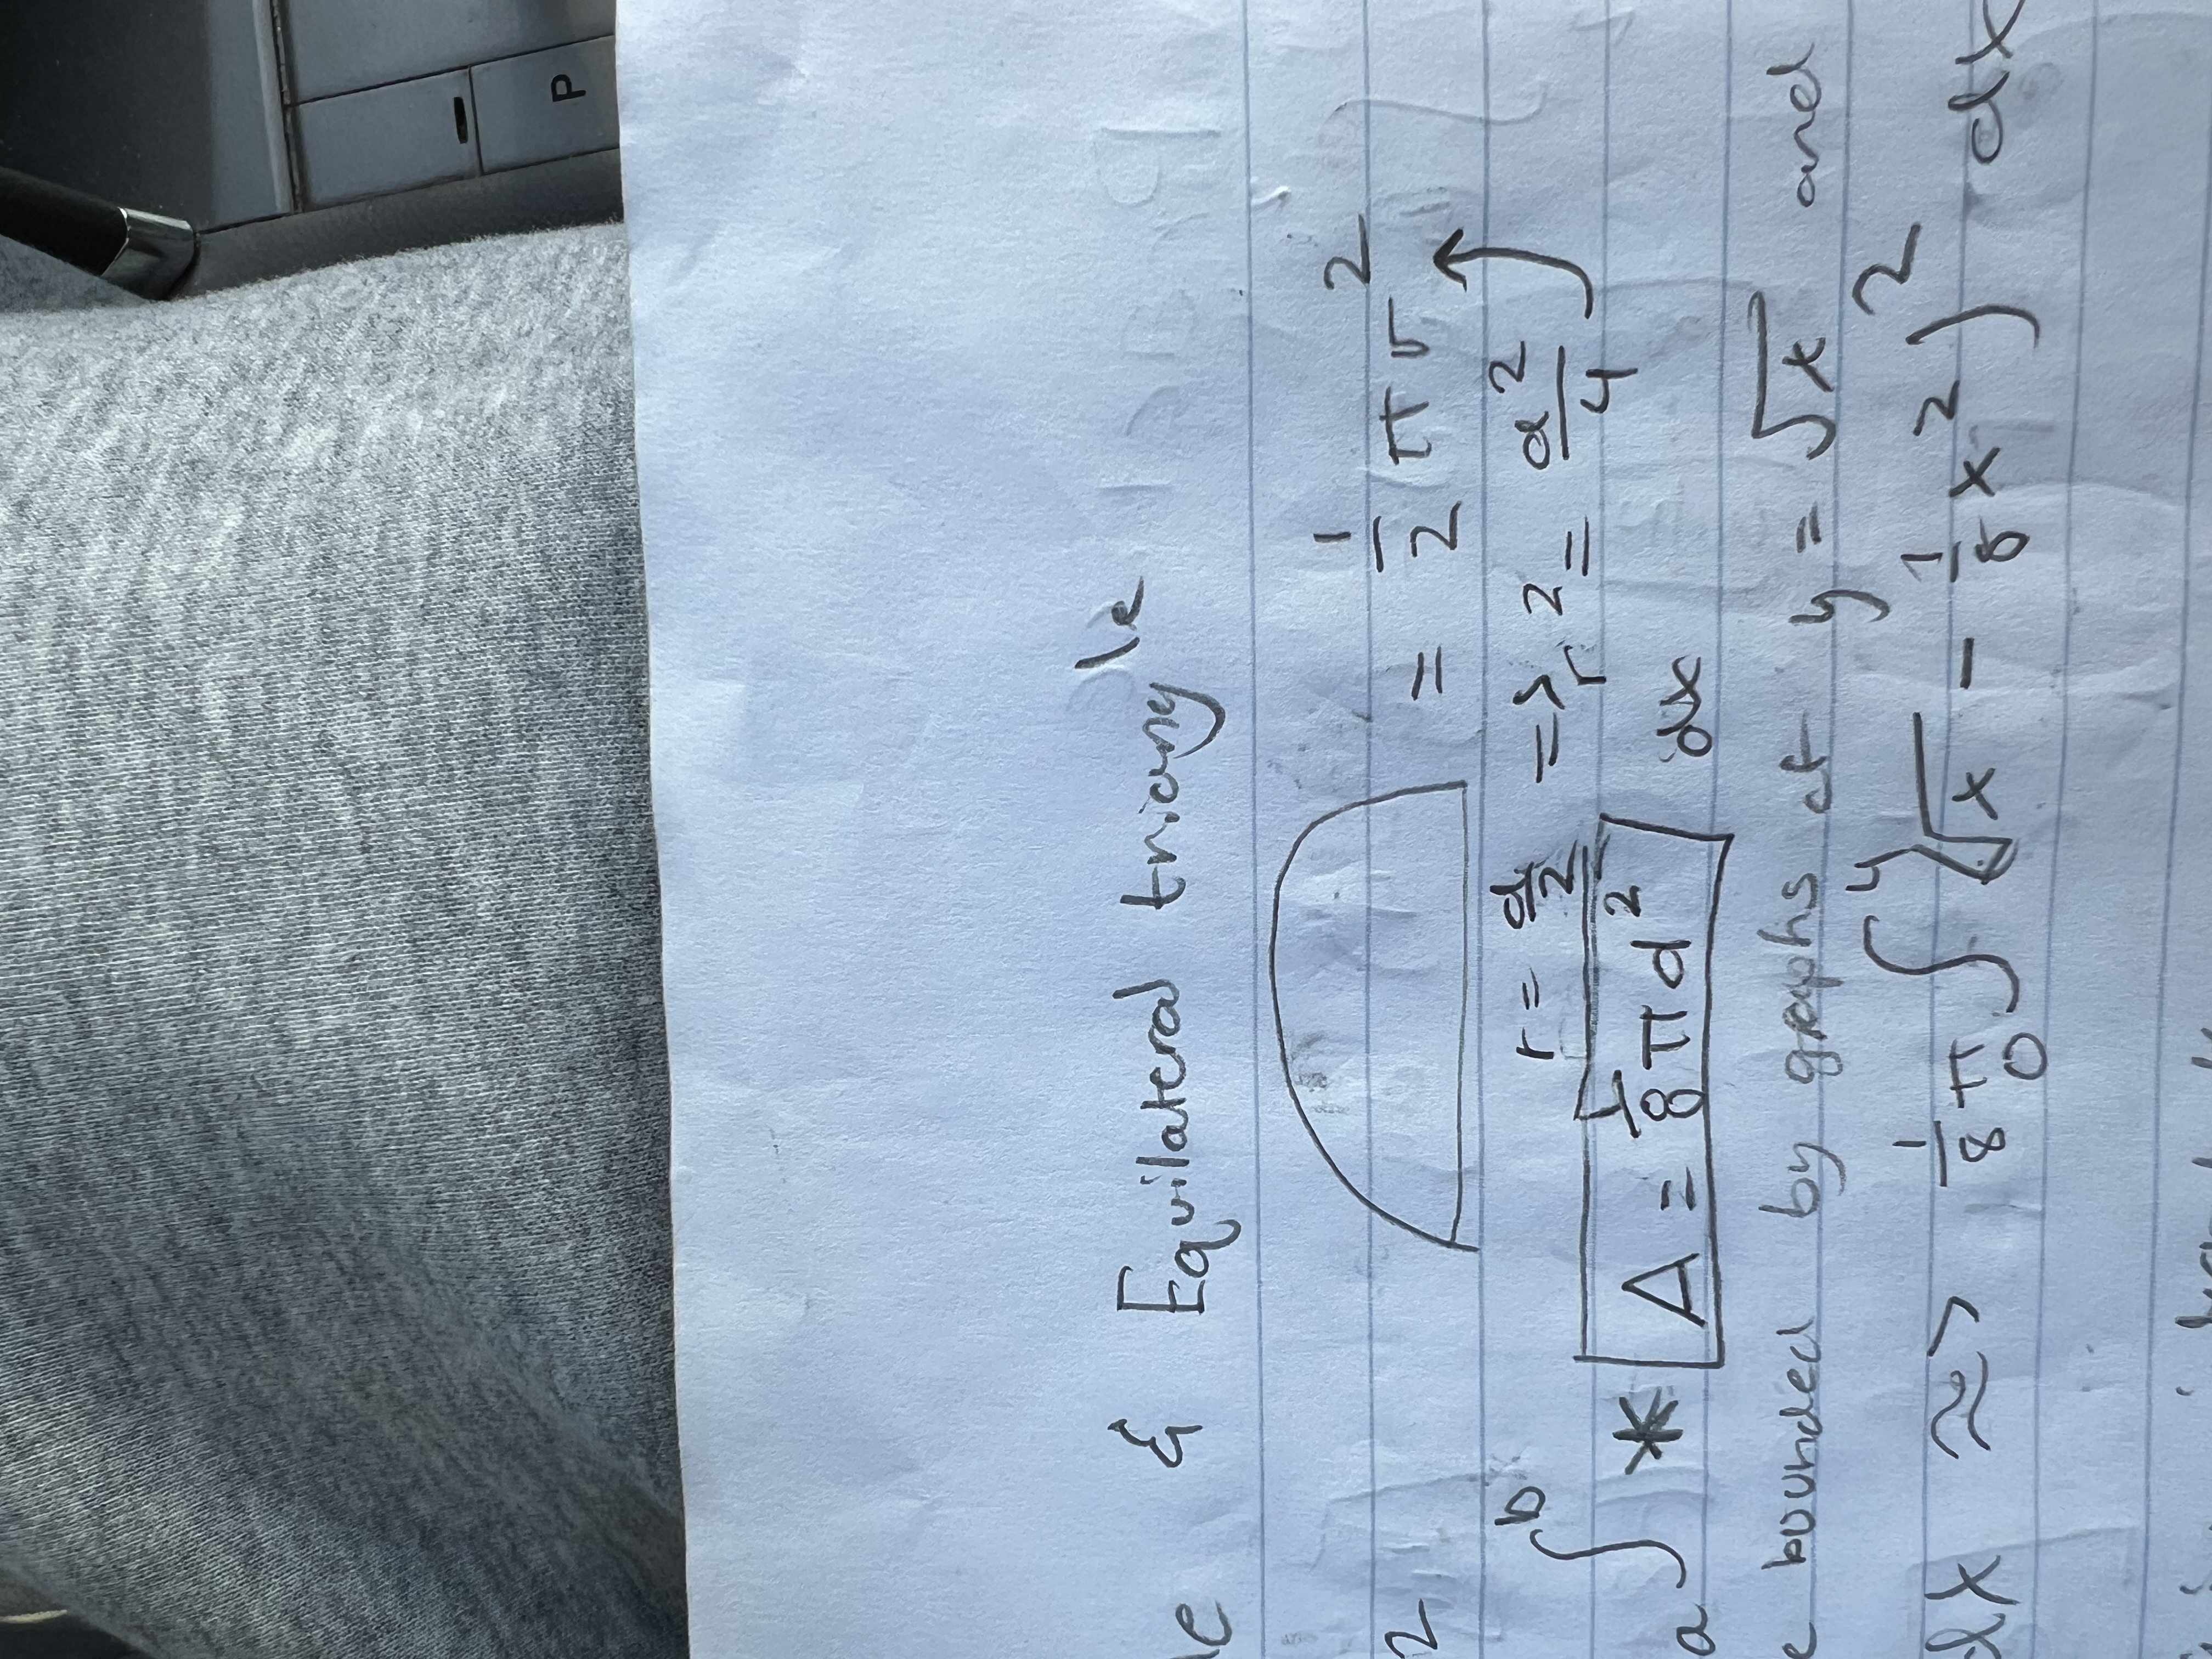 & Equilateral triangle
2
= 1/2 πr²
r = d/2 => r² = d²/4
a∫b * A = 1/8 πd² dx
bounded by graphs of y = √x and
dx ≈> 1/8 π ∫₀⁴ (√x - 1/8 x²)² dx
P